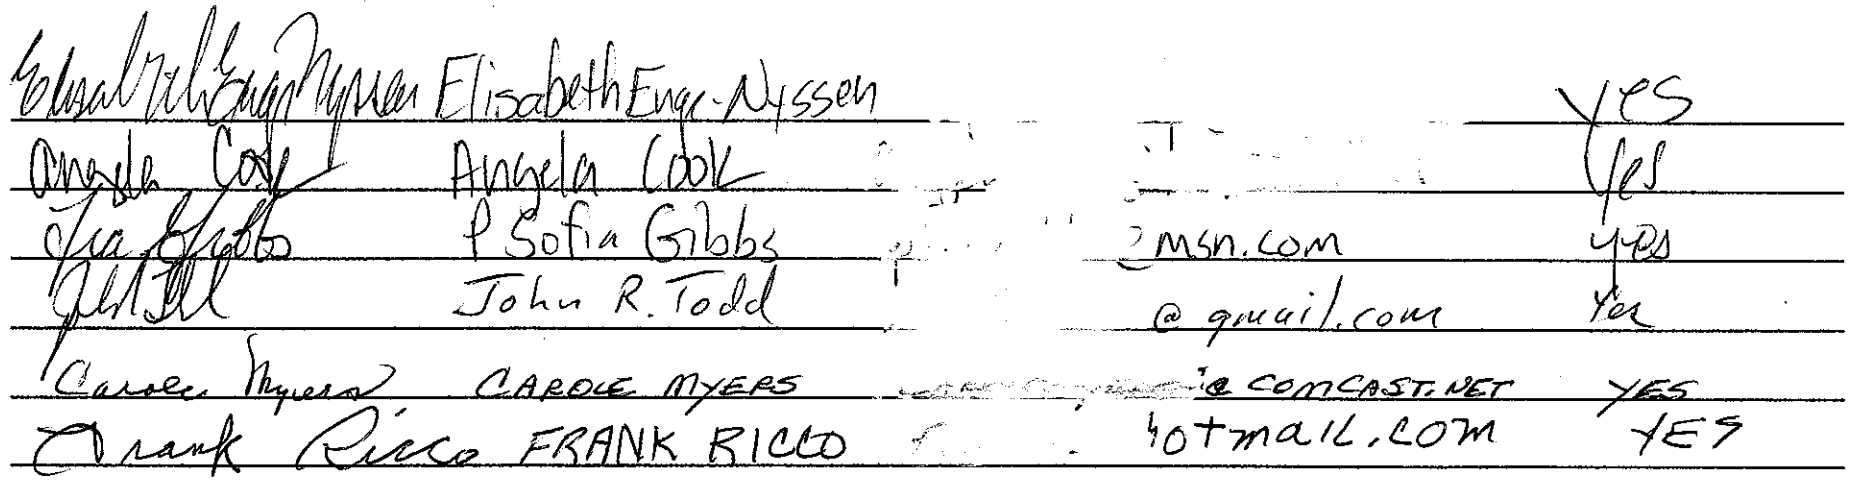 Elisabeth Enge-Nyssen Elisabeth Enge-Nyssen yes
Angela Cook Angela Cook Yes
Gibbs P Sofia Gibbs msn.com yes
John R. Todd @ gmail.com Yes
Carole Myers CAROLE MYERS @ COMCAST.NET YES
Frank Ricco FRANK RICCO hotmail.com YES